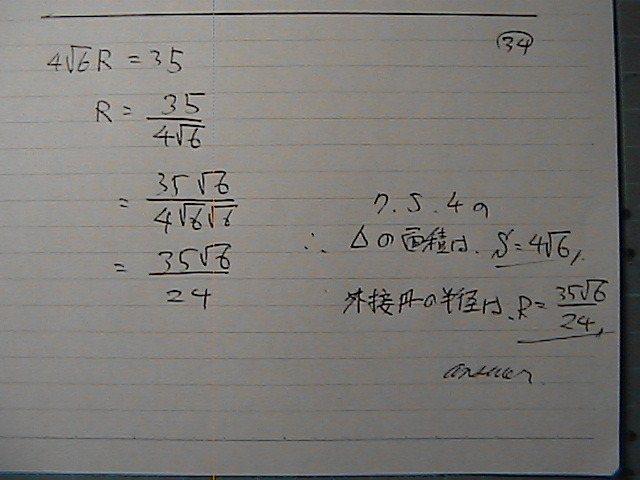 34
4√6R = 35
R = 35/4√6
= 35√6/4√6√6
= 35√6/24
7.5.4の
∴ △の面積は、S=4√6,
外接円の半径は、R=35√6/24,
answer